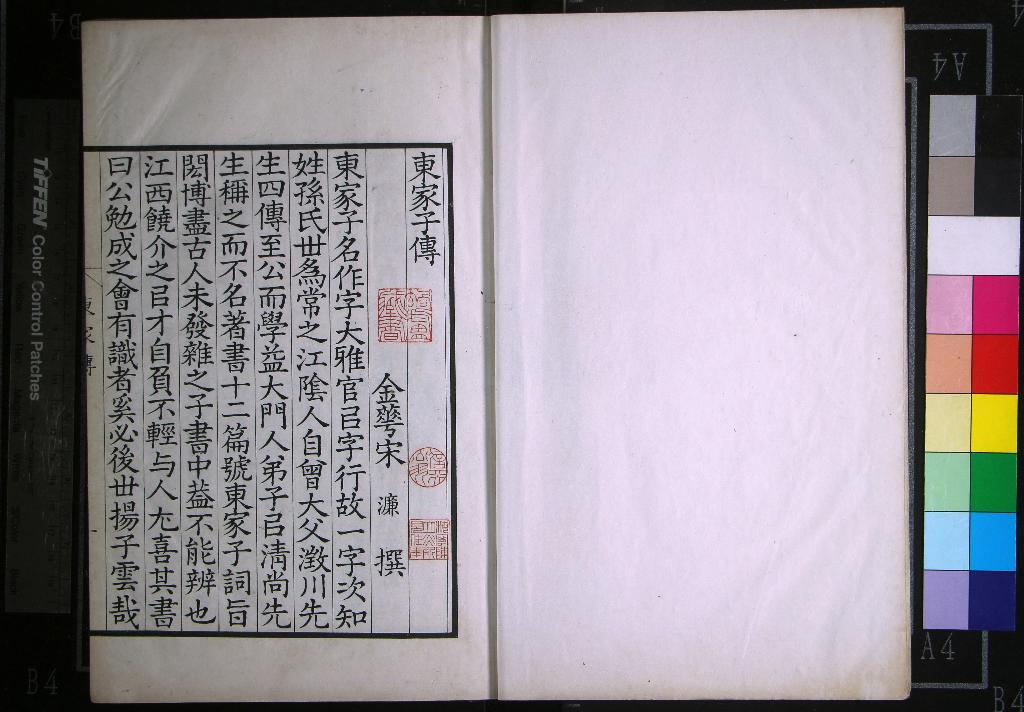 東家子傳
金蕚宋 濂 撰
東家子名作字大雅官㠯字行故一字次知
姓孫氏丗爲常之江陰人自曾大父澂川先
生四傳至公而學益大門人弟子㠯淸尚先
生稱之而不名著書十二篇號東家子詞旨
閎博盡古人未發雜之子書中葢不能辨也
江西饒介之㠯才自負不輕与人尢喜其書
曰公勉成之會有識者奚必後丗揚子雲哉
東家傳
TIFFEN Color Control Patches
A4
A4
B4
B4
B4